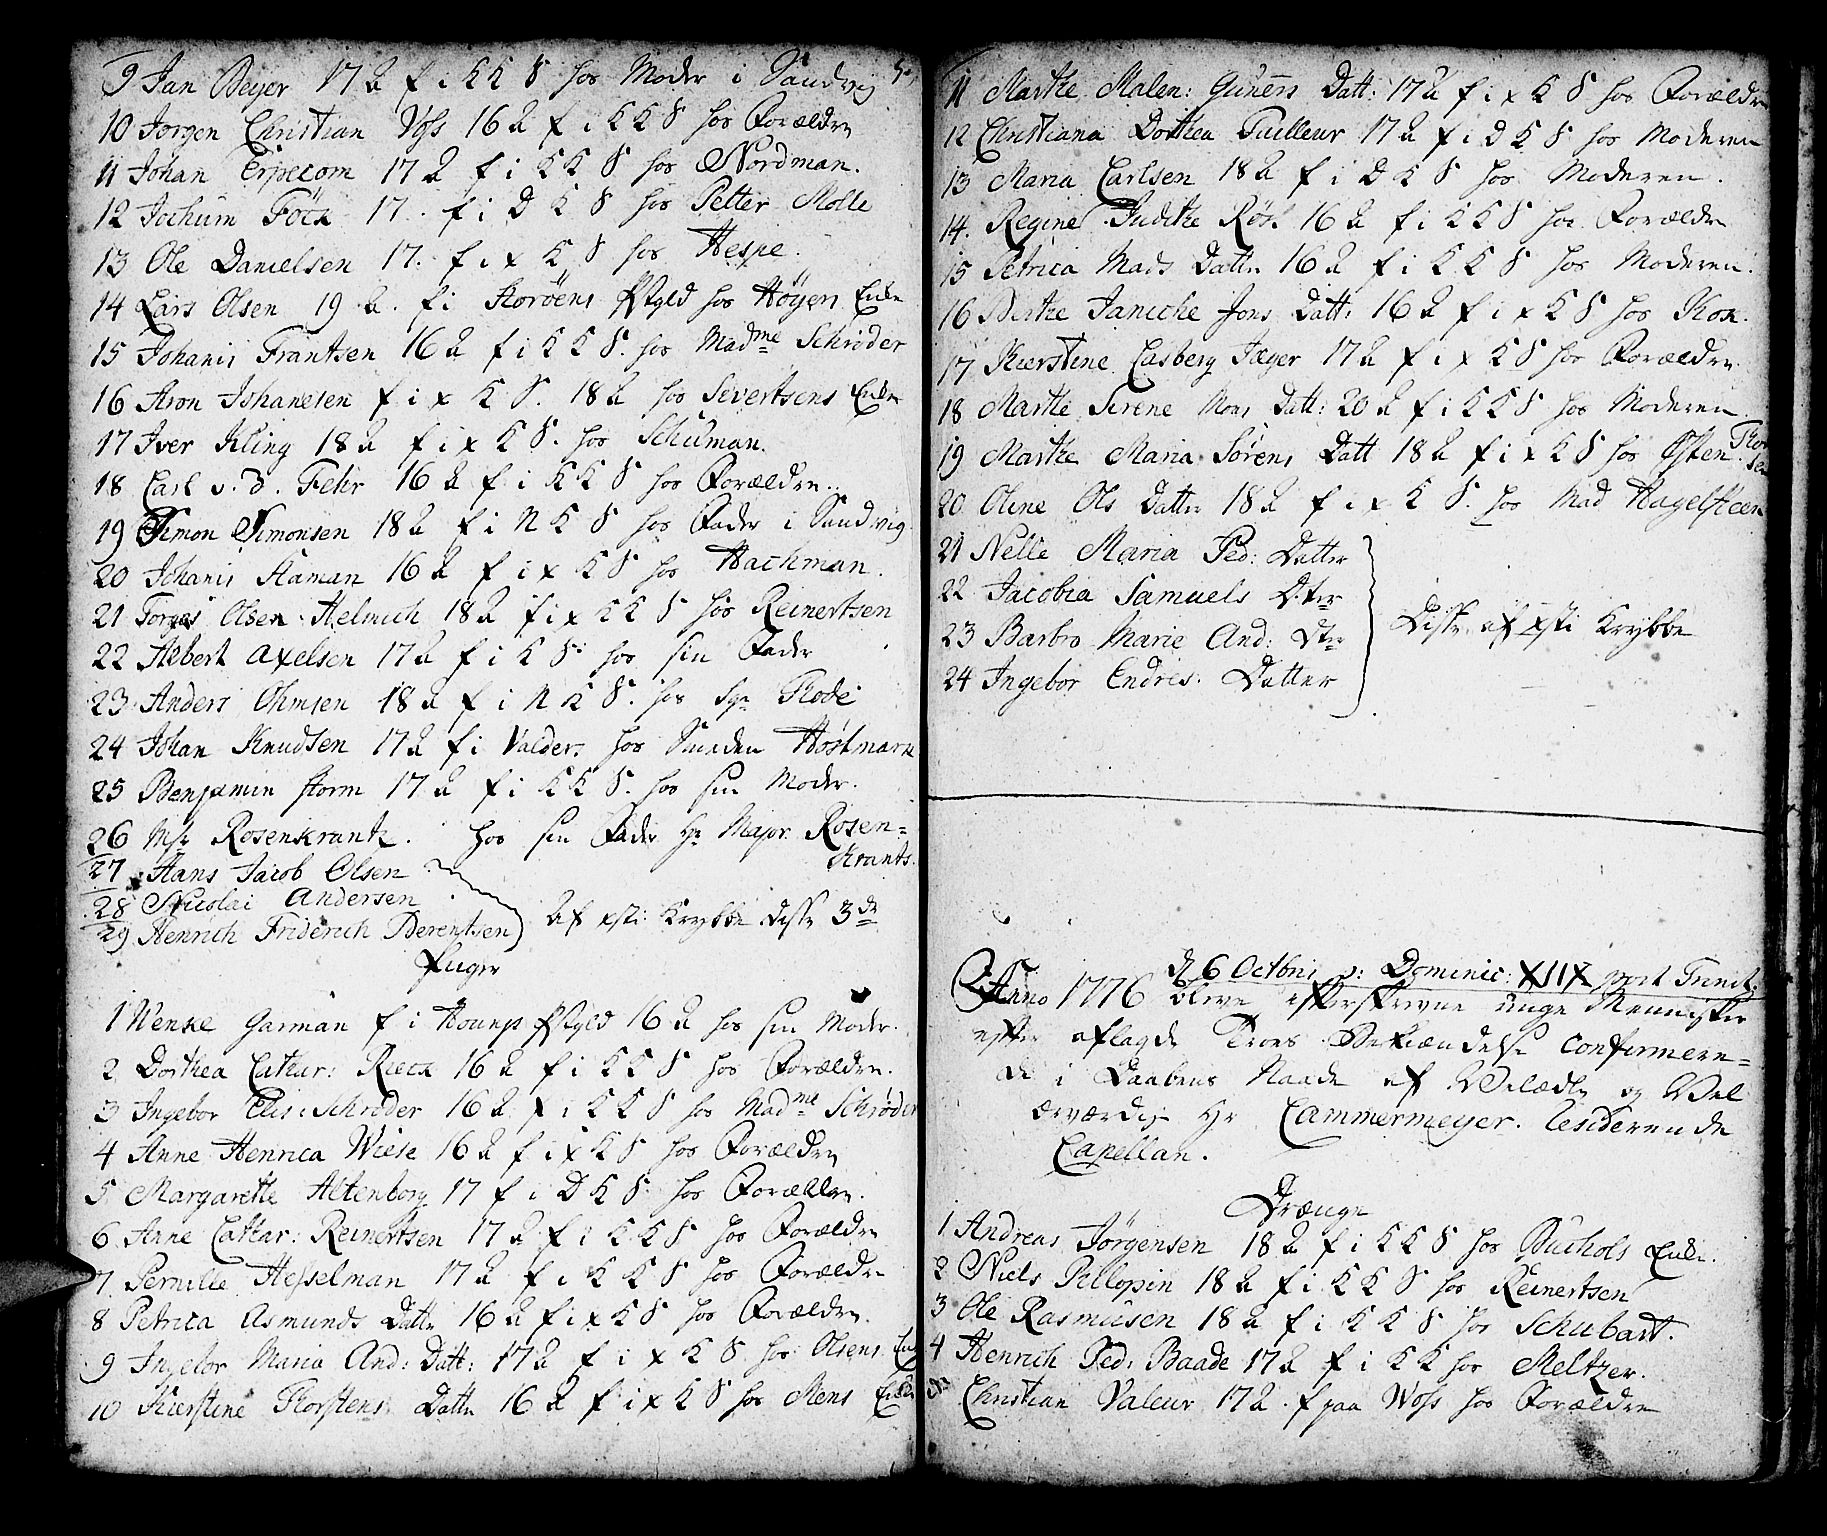 9 Jan Beyer 17 a f i K K S hos Moder i Sandvig
10 Jörgen Christian Voss 16 a f i K K S hos Forældre
11 Johan Erpecom 17 a f i K K S hos Nordman.
12 Jochum Föck 17. f i D K S hos Petter Molle
13 Ole Danielsen 17. f i x K S hos Hespe.
14 Lars Olsen 19 a. f i Storöens hos Höyers Enke
15 Johanis Frantsen 16 a f i K K S. hos Madme Schrider
16 Aron Johanesen f i x K S. 18 a hos Severtsens Enke
17 Iver Kling 18 a f i x K S. hos Schuman.
18 Carl v. d. Fehr 16 a f i K K S hos Forældre.
19 Simon Simonsen 18 a f i N K S hos Fader i Sandvig
20 Johanis Staman 16 a f i x K S hos Hachman.
21 Olsen Helmich 18 a f i x K K S hos Reinertsen
22 Albert Axelsen 17 a f i K S hos sin Fader
23 Anders Ohmsen 18 a f i N K S. hos Sgr Rode
24 Johan Knudsen 17 a f i Valders hos Höstmark
25 Benjamin Storm 17 a f i K K S. hos sin Moder.
26 Msr Rosenkrantz. hos sin Fader Hr Major Rosen=
Krants.
27 Hans Jacob Olsen
28 Nicolai Andersen
29 Henrich Friderich Berentsen
af xsti Krybbe disse 3de
Piger
1 Wenke Garman f i 16 a hos sin Moder.
2 Dorthea Cathar: Rieck 16 a f i K K S hos Forældre.
3 Ingebor Elis: Schrøder 16 a f i K K S hos Madme Schrøder
4 Anne Henrica Wiese 16 a f i x K S hos Forældre
5 Margarethe Altenborg 17 f i D K S hos Forældre.
6 Anne Cathar: Reinertsen 17 a f i K K S hos Forældre
7 Pernille Hesselman 17 a f i K K S hos Forældre
8 Petrica Asmunds Datter 16 a f i x K S hos Forældre.
9 Ingebor Maria And: Datt: 17 a f i x K S hos Olsens
10 Kierstine Thorstens Datter 16 a f i x K S hos Mens Enke
11 Marthe Malen: Guners Datt: 17 a f i x K S hos Forældre
12 Christiana Dorthea Tuilleur 17 a f i D K S hos Moderen
13 Maria Carlsen 18 a f i D K S hos Moderen.
14. Regine Judithe Rös. 16 a f i K K S hos Forældre
15 Petrica Mads Datter 16 a f i K K S hos Moderen.
16 Berthe Janiche Jons Datt: 16 a f i x K S hos Kox.
17 Kierstine Casberg Jæger 17 a f i x K S hos Forældre.
18 Marthe Serene Mons Datt: 20 a f i K K S hos Moderen
19 Marthe Maria Sörens Datt 18 a f i x K S hos Østen Thor
sen
20 Oline Ols Datter 18 a f i x K S. hos Mad Hagelsteen
21 Nelle Maria Ped: Datter
22 Jacobia Samuels Dter
23 Barbro Marie And: Dter
24 Ingebor Endres: Datter
Disse af xsti Krybbe
d 6 Octbris Dominic: XIIX post Trinit.
Anno 1776 bleve efterskrevne unge Mennisker
efter aflagde Troes Bekiændelse confirmere=
de i Daabens Naade af Velædle og Vel
ærværdige Hr Cammermeyer. residerende
Capellan.
Drænge
1 Andreas Jörgensen 18 a f i K K S hos Buchols Enke.
2 Niels Pillopin 18 a f i K K S hos Reinertsen
3 Ole Rasmusen 18 a f i K K S hos Schubart.
4 Henrich Ped: Baade 17 a f i K K hos Meltzer.
Christian Valeur 17 a. f paa Voss hos Forældre